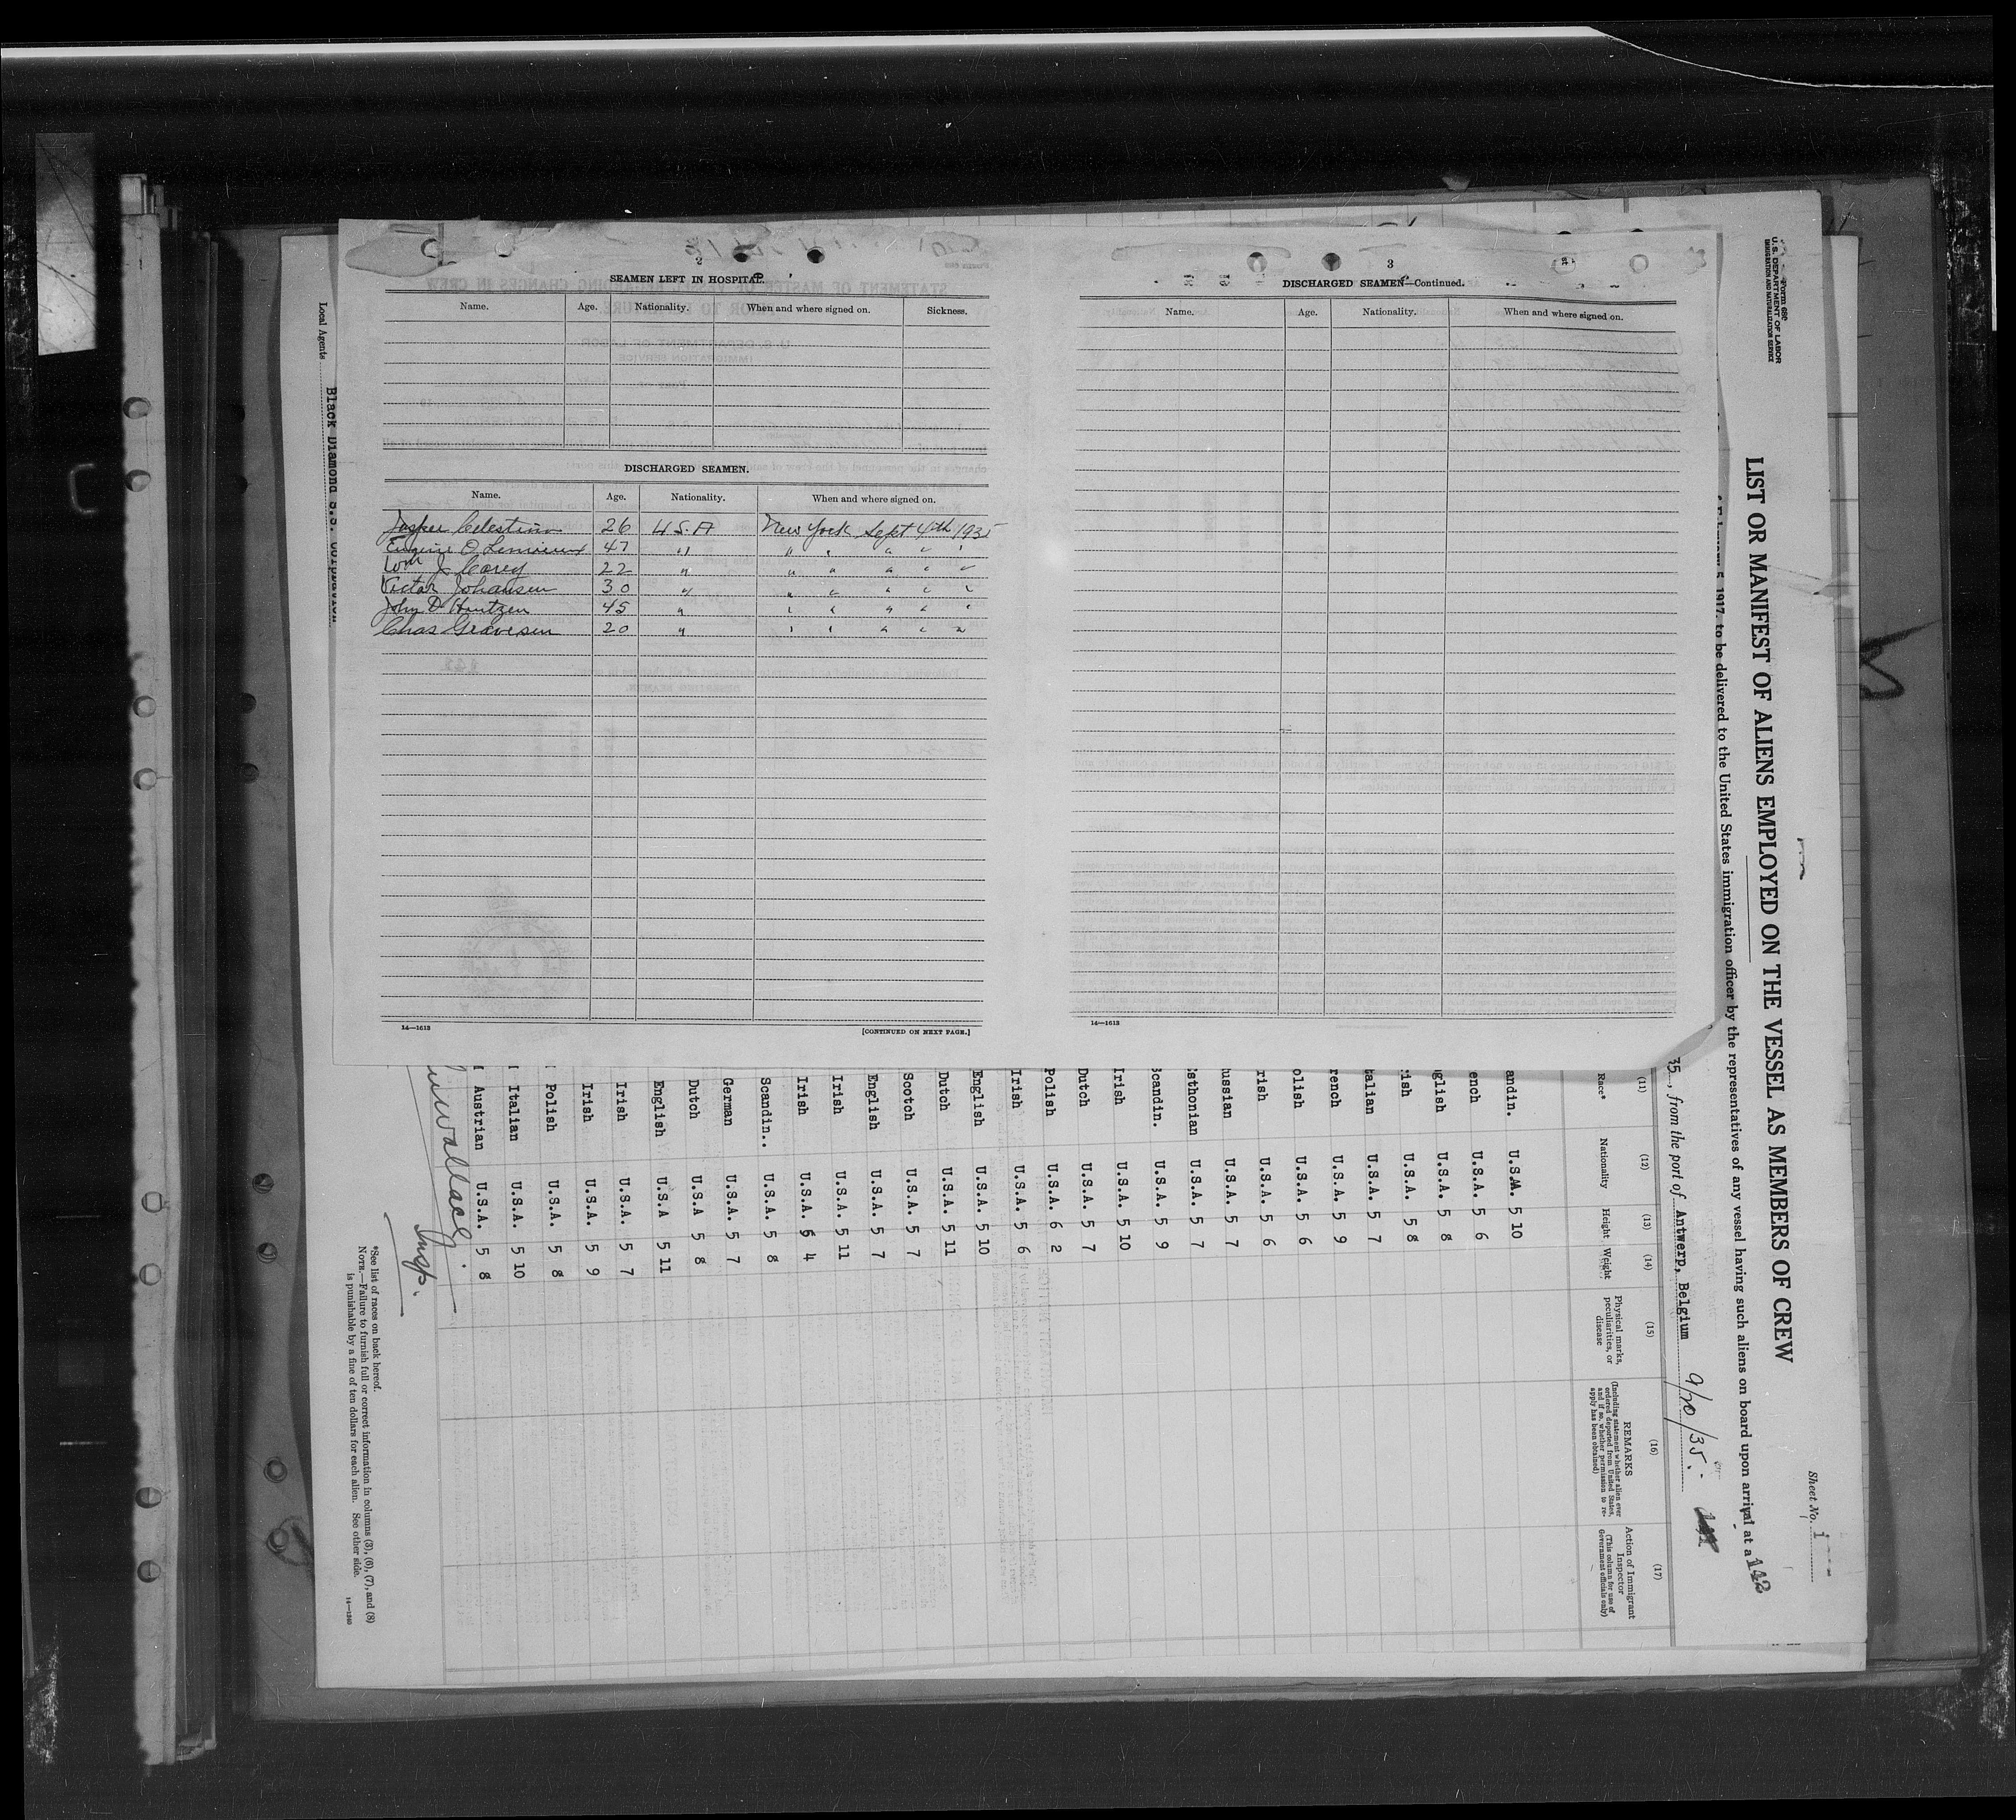 2
SEAMEN LEFT IN HOSPITAL.
Name. Age. Nationality. When and where signed on. Sickness.
DISCHARGED SEAMEN.
Name. Age. Nationality. When and where signed on.
Jasper Celestino 26 U.S.A New York Sept 4th 1935
Eugene O. Lemieux 47 " " " " " "
22 " " " " " "
Victor Johansen 30 " " " " " "
John D. Huntzen 45 " " " " " "
Chas Gravesen 20 " " " " " "
14—1613 [CONTINUED ON NEXT PAGE.]
3
DISCHARGED SEAMEN—Continued.
Name. Age. Nationality. When and where signed on.
14—1613
Form 680
U.S. DEPARTMENT OF LABOR
IMMIGRATION AND NATURALIZATION SERVICE
Sheet No. 1
LIST OR MANIFEST OF ALIENS EMPLOYED ON THE VESSEL AS MEMBERS OF CREW
5, 1917, to be delivered to the United States immigration officer by the representatives of any vessel having such aliens on board upon arrival at a
142
35, from the port of Antwerp, Belgium 9/20/35.
(11) (12) (13) (14) (15) (16) (17)
Race* Nationality Height Weight Physical marks, peculiarities, or disease REMARKS (Including statement whether alien ever ordered deported from United States, and if so, whether permission to reapply has been obtained) Action of Immigrant Inspector (This column for use of Government officials only)
andin. U.S.A. 5 10
ench U.S.A. 5 6
glish U.S.A. 5 8
ish U.S.A. 5 8
talian U.S.A. 5 7
rench U.S.A. 5 9
olish U.S.A. 5 6
rish U.S.A. 5 6
ussian U.S.A. 5 7
sthonian U.S.A. 5 7
Scandin. U.S.A. 5 9
Irish U.S.A. 5 10
Dutch U.S.A. 5 7
Polish U.S.A. 6 2
Irish U.S.A. 5 6
English U.S.A. 5 10
Dutch U.S.A. 5 11
Scotch U.S.A. 5 7
English U.S.A. 5 7
Irish U.S.A. 5 11
Irish U.S.A. 5 4
Scandin.. U.S.A. 5 8
German U.S.A. 5 7
Dutch U.S.A 5 8
English U.S.A 5 11
Irish U.S.A. 5 7
Irish U.S.A. 5 9
Polish U.S.A. 5 8
Italian U.S.A. 5 10
Austrian U.S.A. 5 8
Insp.
*See list of races on back hereof.
NOTE.—Failure to furnish full or correct information in columns (3), (6), (7), and (8)
is punishable by a fine of ten dollars for each alien. See other side.
14—1240
Local Agents Black Diamond S.S. Corporation.